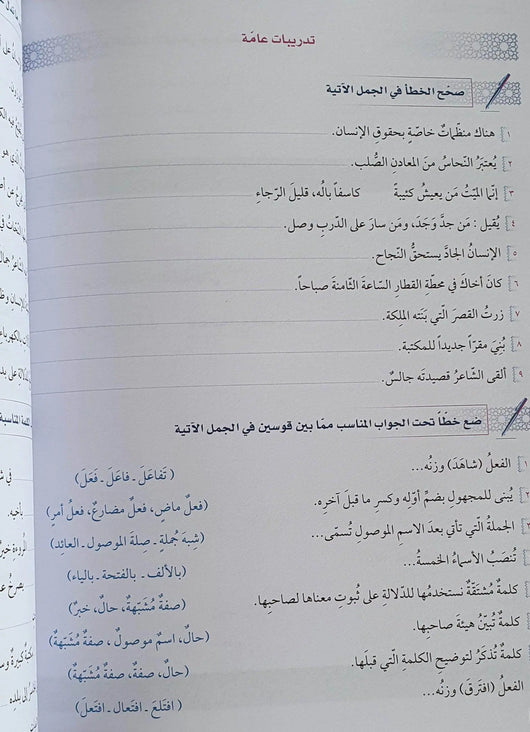 تدريبات عامّة
صحّح الخطأ في الجمل الآتية
١ هناك منظّماتٌ خاصّةٍ بحقوقِ الإنسان.
٢ يُعتبَرُ النّحاسُ منَ المعادنِ الصُّلب.
٣ إنّما الميْتُ مَن يعيشُ كئيبةً كاسفاً بالُه، قليلَ الرّجاءِ
٤ يُقيل: مَن جدَّ وَجَدَ، ومَن سارَ على الدّربِ وصل.
٥ الإنسانُ الجادَّ يستحقُّ النّجاح.
٦ كانَ أخاكَ في محطّةِ القطارِ السّاعةَ الثّامنةَ صباحاً.
٧ زرتُ القصرَ الّتي بَنَته الملِكة.
٨ بُنِيَ مقرّاً جديداً للمكتبة.
٩ ألقى الشّاعرُ قصيدتَه جالسٌ.
ضع خطّاً تحت الجواب المناسب ممّا بين قوسين في الجمل الآتية
١ الفعلُ (شاهَدَ) وزنُه... (تَفاعَلَ ـ فاعَلَ ـ فَعَلَ)
يُبنى للمجهولِ بضمِّ أوّلِه وكسرِ ما قبلَ آخرِه. (فعلٌ ماضٍ، فعلٌ مضارعٌ، فعلُ أمرٍ)
الجملةُ الّتي تأتي بعدَ الاسمِ الموصولِ تُسمّى... (شِبهَ جُملةٍ ـ صِلةَ الموصول ـ العائد)
تُنصَبُ الأسماءُ الخمسةُ... (بالألف ـ بالفتحة ـ بالياء)
كلمةٌ مُشتَقّةٌ نستخدمُها للدّلالةِ على ثُبوتِ معناها لصاحبِها. (صفةٌ مُشَبّهةٌ، حالٌ، خبرٌ)
كلمةٌ تُبيّنُ هيئةَ صاحبِها. (حالٌ، اسمٌ موصولٌ، صفةٌ مُشَبّهةٌ)
كلمةٌ تُذكَرُ لتوضيحِ الكلمةِ الّتي قبلَها. (حالٌ، صفةٌ، صفةٌ مُشَبّهةٌ)
الفعلُ (افتَرَقَ) وزنُه... (افتَلَعَ ـ افتَعال ـ افتَعلَ)